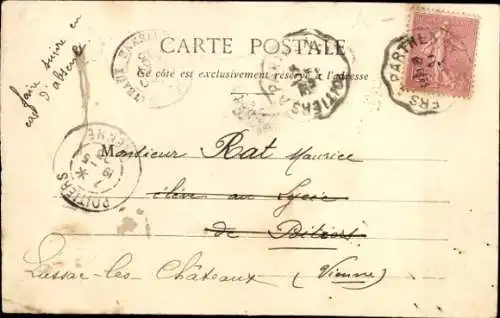 faire suivre en
cas d'absence
CARTE POSTALE
Ce côté est exclusivement réservé à l'adresse
POITIERS A PARTHENAY
POITIERS
VIENNE
Monsieur Rat Maurice
élève au Lycée
de Poitiers
Lussac-les-Châteaux (Vienne)